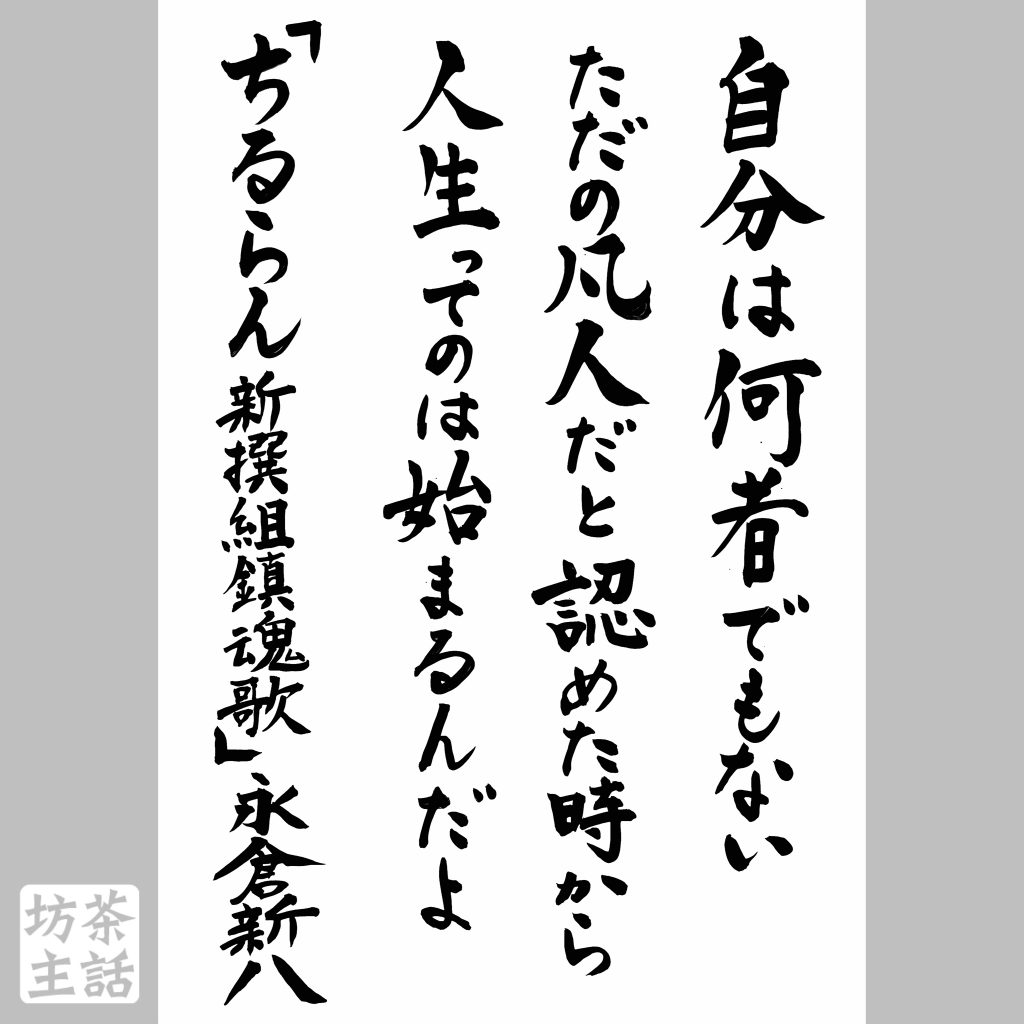 自分は何者でもない
ただの凡人だと認めた時から
人生ってのは始まるんだよ
「ちるらん新撰組鎮魂歌」永倉新八
茶話
坊主